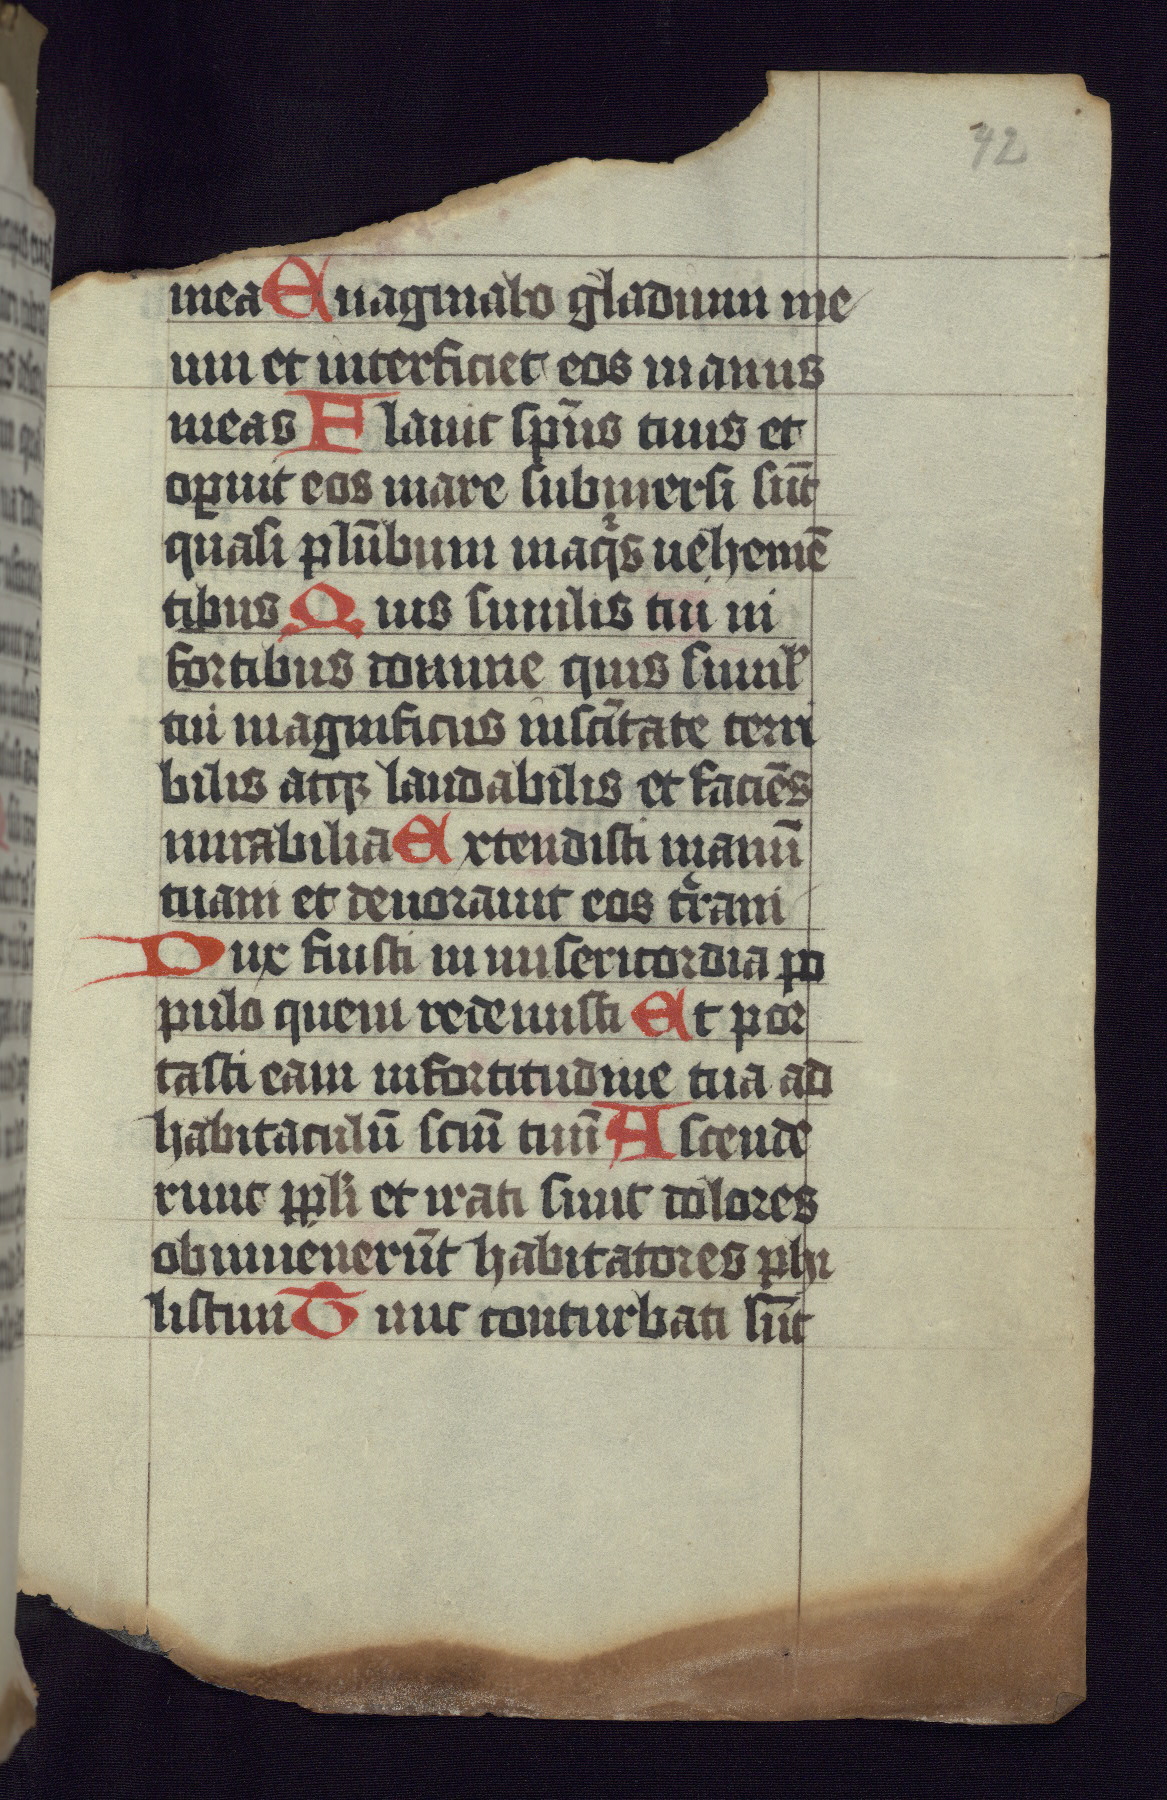 42
mea Euaginabo gladium me
um et interficiet eos manus
meas Flauit sp̄us tuus et
oꝑuit eos mare submersi sūt
quasi plūbum in aqͥs uehemē
tibus Quis similis tui in
fortibus domine quis simil̛
tui magnificus in scītate terri
bilis atqꝫ laudabilis et faciēs
mirabilia Extendisti manū
tuam et deuorauit eos t̛ram
Dux fuisti in misericordia po
pulo quem redemisti Et por
tasti eam in fortitudine tua ad
habitaculū sc̄m tuū Ascende
runt ppl̛i et irati sunt dolores
obtinuerūt habitatores phi
listiim Tunc conturbati sūt